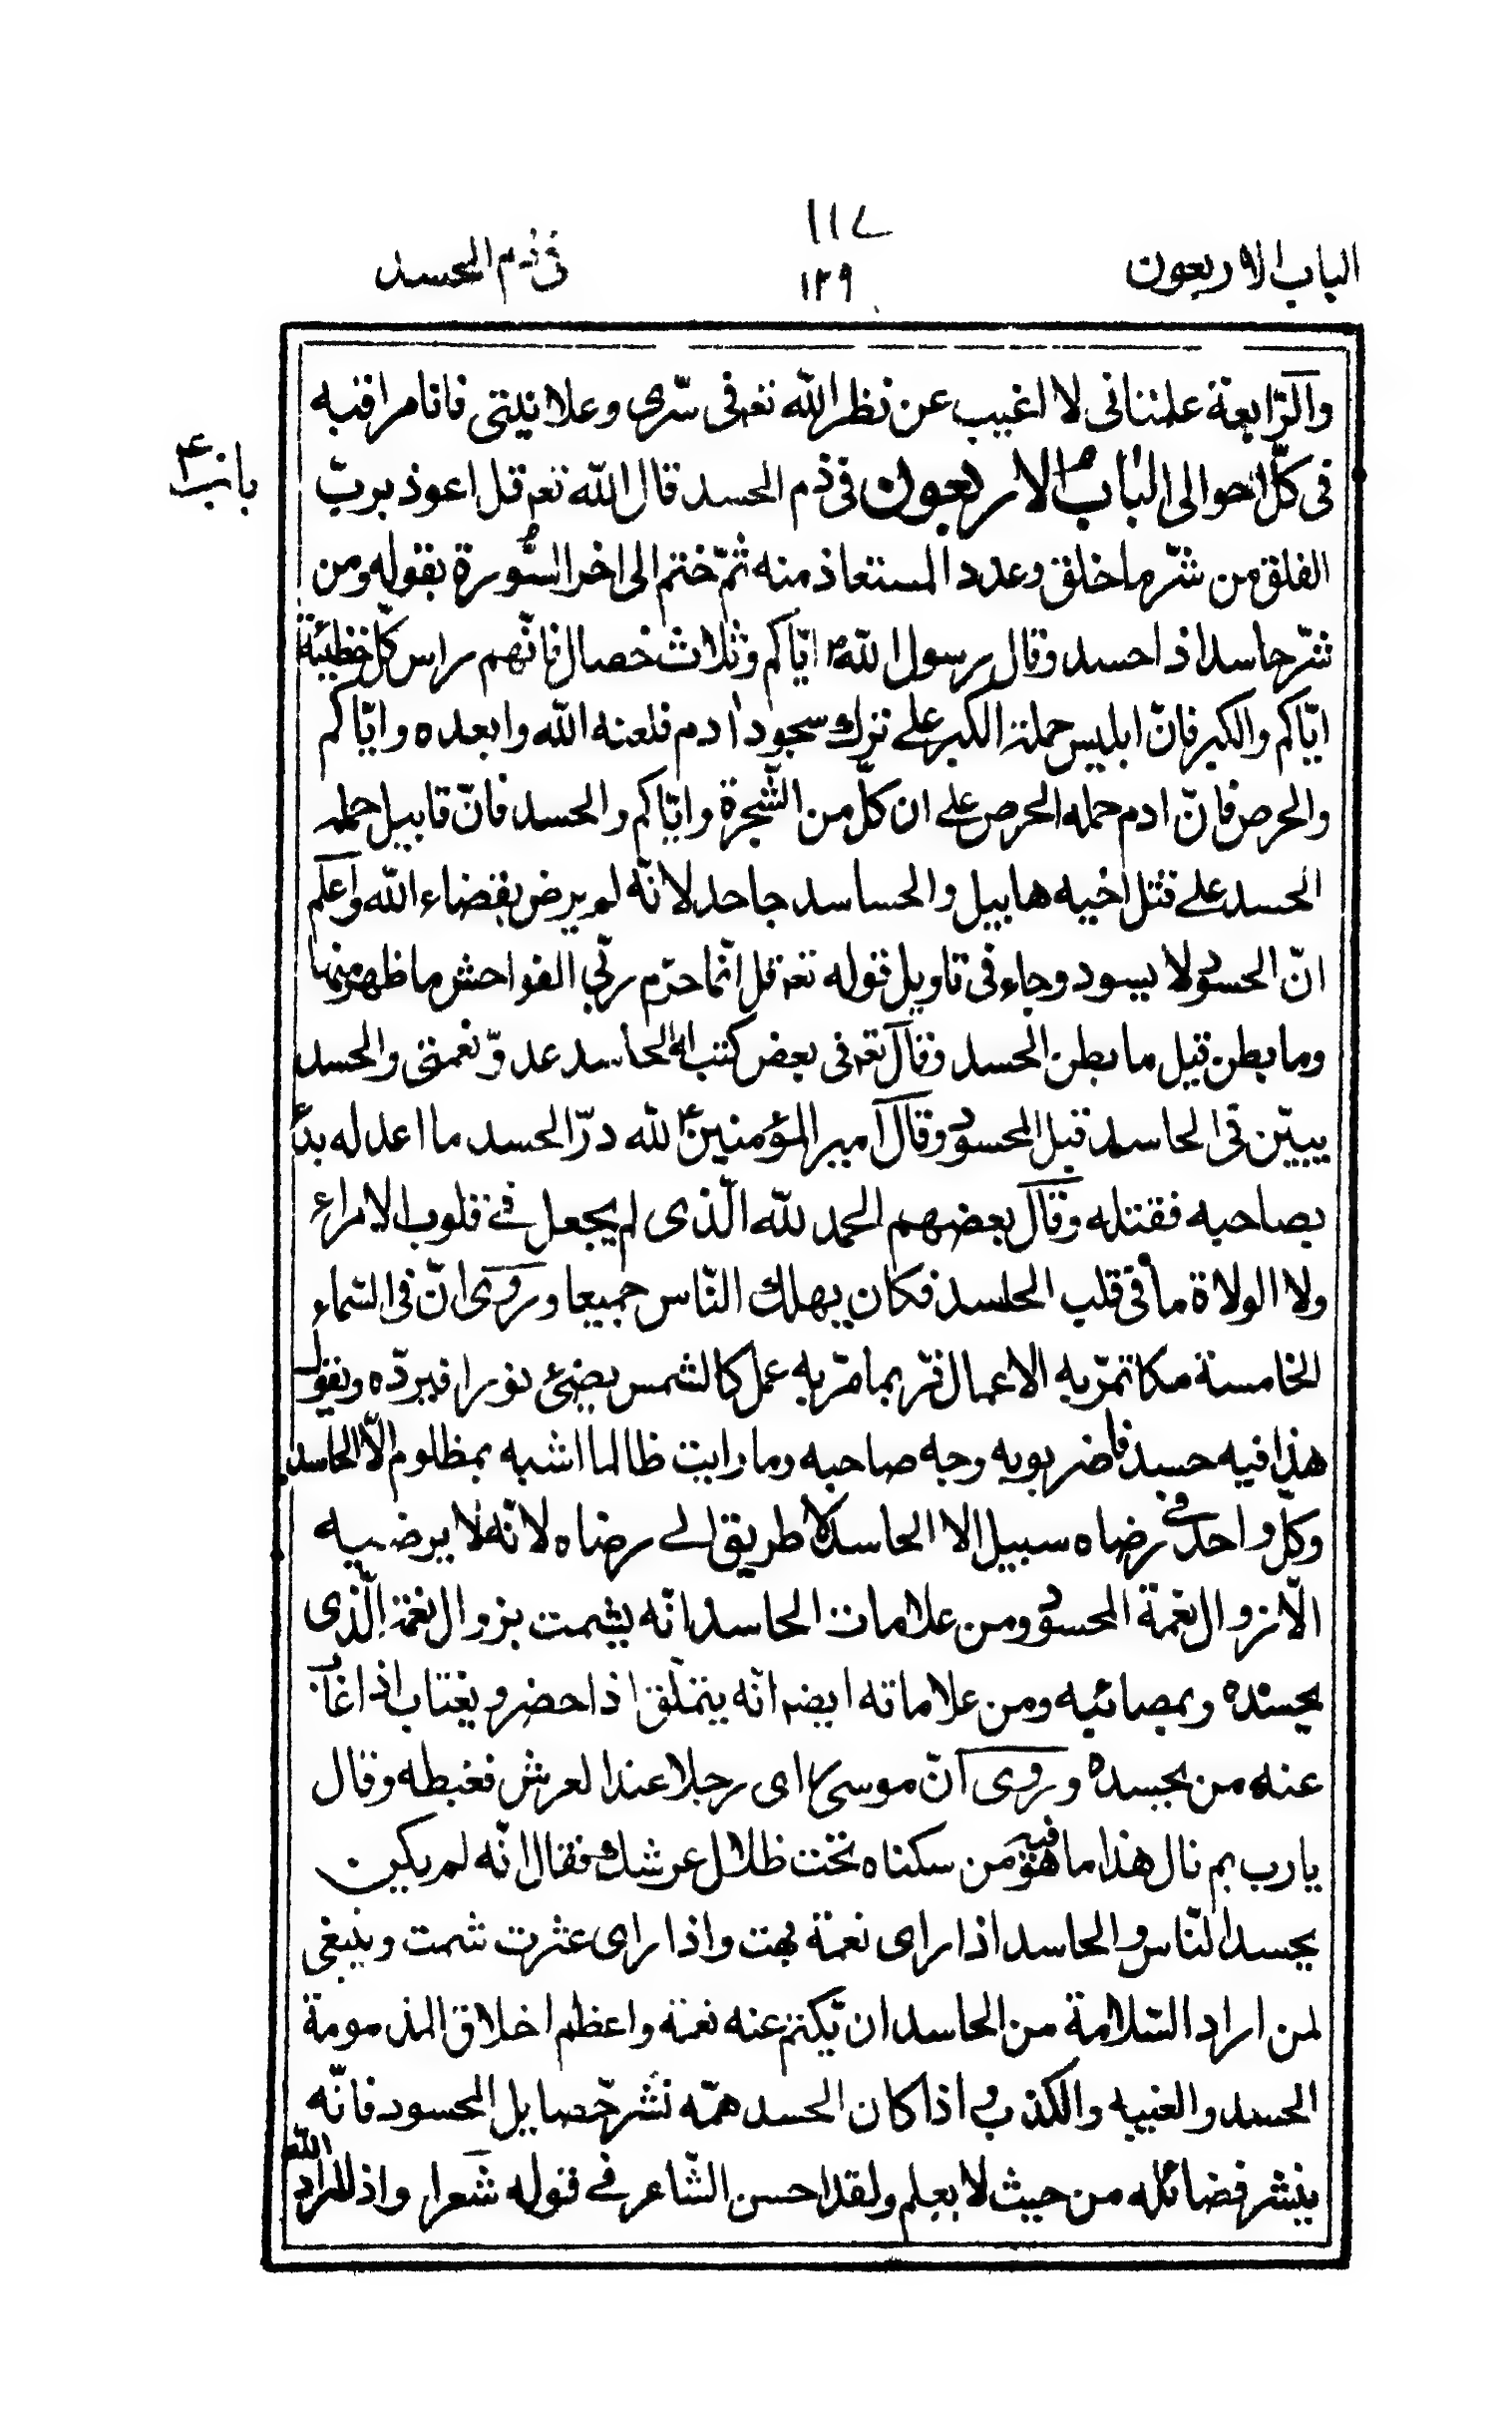 الباب الاربعون
١١٧
١٢٩
فى ذم الحسد
والرّابعة علمت انى لا اغيب عن نظر اللّه تعه فى سّرى وعلانيتى فانا مراقبه
فى كلّ احوالى الباب الاربعون فى ذم الحسد قال اللّه تعه قل اعوذ بربّ
باب ۴۰
الفلق من شرّ ما خلق وعدد المستعاذ منه ثمّ ختم الى اخر السّورة بقوله ومن
شرّ حاسد اذا حسد وقال رسول اللّه ص ايّاكم وثلاث خصال فانّهم راس كلّ خطيئة
ايّاكم والكبر فانّ ابليس حمله الكبر على ترك سجود ادم فلعنه اللّه وابعده وايّاكم
والحرص فانّ ادم حمله الحرص على ان كلّ من الشّجرة وايّاكم والحسد فانّ قابيل حمله
الحسد على قتل اخيه هابيل والحساسد جاحد لانّه لم يرض بقضاء اللّه واعلم
انّ الحسود لا يسود وجاء فى تاويل قوله تعه قل انّما حرّم ربّى الفواحش ما ظهر منها
وما بطن قيل ما بطن الحسد وقال تعه فى بعض كتبه الحاسد عدوّ نعمتى والحسد
يبيّن فى الحاسد قبل المحسود وقال امير المؤمنين ع للّه درّ الحسد ما اعدله بدء
بصاحبه فقتله وقال بعضهم الحمد للّه الّذى لم يجعل فى قلوب الامراء
ولا الولاة ما فى قلب الحاسد فكان يهلك النّاس جميعا وروى انّ فى السّماء
الخامسة مكا تمرّ به الاعمال فربما مرّ به عمل كالشمس يضئ نورا فيردّه ويقول
هذا فيه حسد فاضربو به وجه صاحبه وما رايت ظالما اشبه بمظلوم الّا الحاسد
وكلّ واحد فى رضاه سبيل الا الحاسد لا طريق الى رضاه لانّه لا يرضيه
الّا زوال نعمة المحسود ومن علامات الحاسد انّه يشمت بزوال نعمة الّذى
يحسده وبمصائبه ومن علاماته ايضه انّه يتملّق اذا حضر ويغتاب اذا غاب
عنه من يحسده وروى انّ موسى راى رجلا عند العرش فغبطه وقال
يارب بم نال هذا ما هو فيه من سكناه تحت ظلال عرشك فقال انّه لم يكن
يحسد النّاس والحاسد اذا راى نعمة بهت واذا راى عثرت شمت وينبغى
لمن اراد السّلامة من الحاسد ان يكتم عنه نعمة واعظم اخلاق المذمومة
الحسد والغيبه والكذب واذا كان الحسد همّه نشر خصايل المحسود فانّه
ينشر فضائله من حيث لا يعلم ولقد احسن الشّاعر فى قوله شعرا واذا اراد اللّه